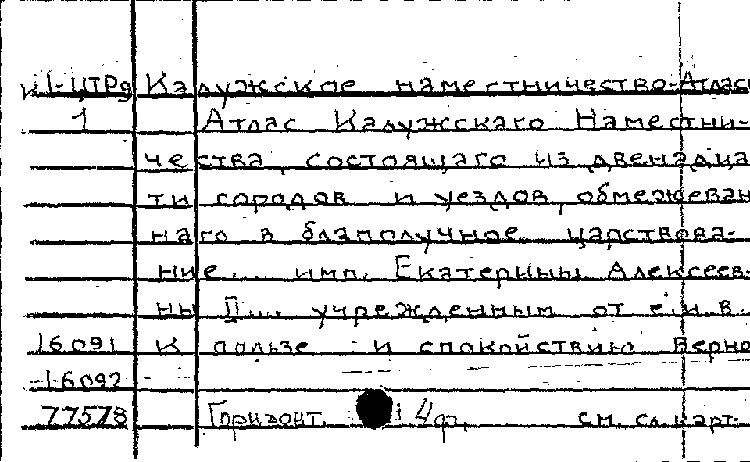 К1-ЦТРд Калужское наместничество-Атлас
1 Атлас Калужскаго Наместни-
чества, состоящаго из двенадца
ти городов и уездов, обмежеван
наго в благополучное царствова-
ние... имп. Екатерины Алексеев-
ны II... учрежденным от е.и.в..
16091 к пользе и спокойствию верно
-16092-
77578 Горизонт. 4ф. см. сл. карт.